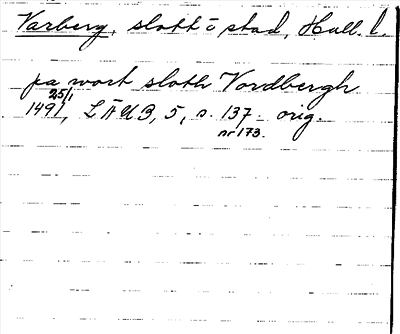 Varberg, slott o stad, Hall. l.
pa wort sloth Vordbergh
25/1
1491, LÄUB, 5, s. 137 orig.
nr 173.